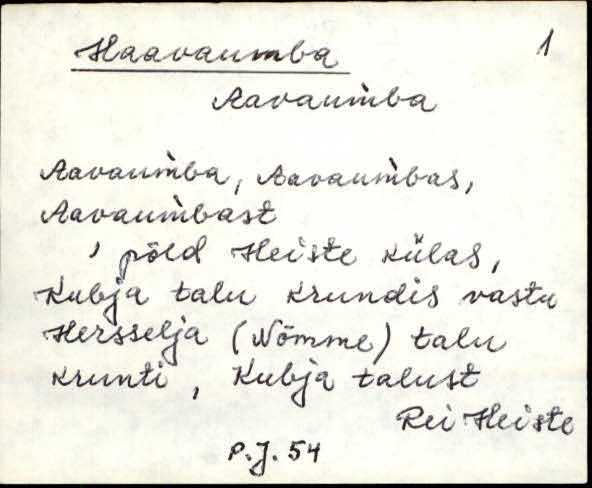 Haavaumba 1
Aavaum̀ba
Aavaum̀ba, Aavaum̀bas,
Aavaum̀bast
, põld Heiste külas,
Kubja talu krundis vastu
Hersselja (Nõmme) talu
krunti, Kubja talust
Rei Heiste
P.J. 54